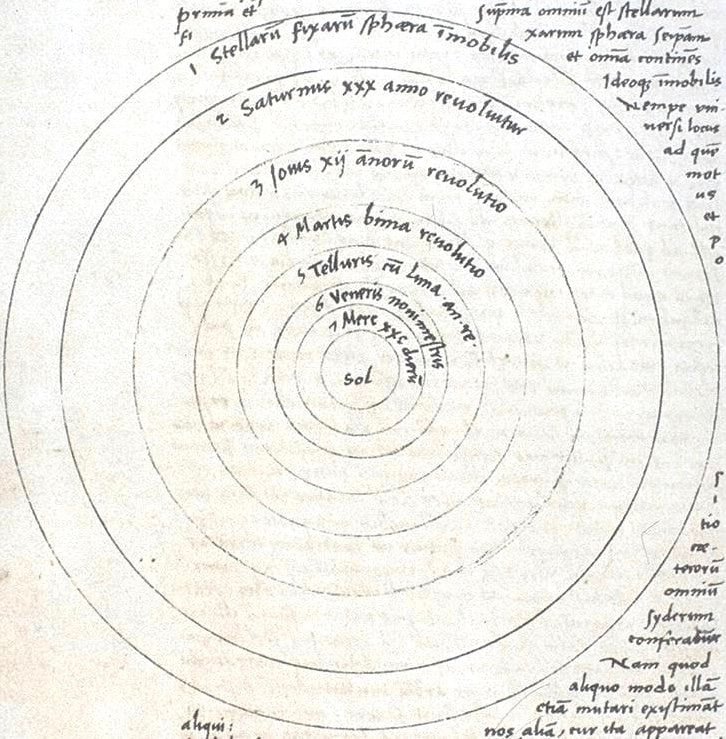 prima et
fi
sup̄ma omniū est stellarum
xarum sphæra seipam
et omīa continēs
Ideoqȝ īmobilis
Nempe vni
uersi locus
ad quē
mot
us
et
p
o
1 Stellarū fixarū sphæra īmobilis
2 Saturnus xxx anno reuoluitur
3 Iouis xij ānorū reuolutio
4 Martis bima reuolutio
5 Telluris cū luna · an · re
6 Veneris nonimestris
7 Merc xxc dierū
Sol
s
i
tio
cæ-
terorū
omniū
syderum
conferatur
Nam quod
aliquo modo illā
etiā mutari existimāt
aliqui:
nos aliā, cur ita appareat